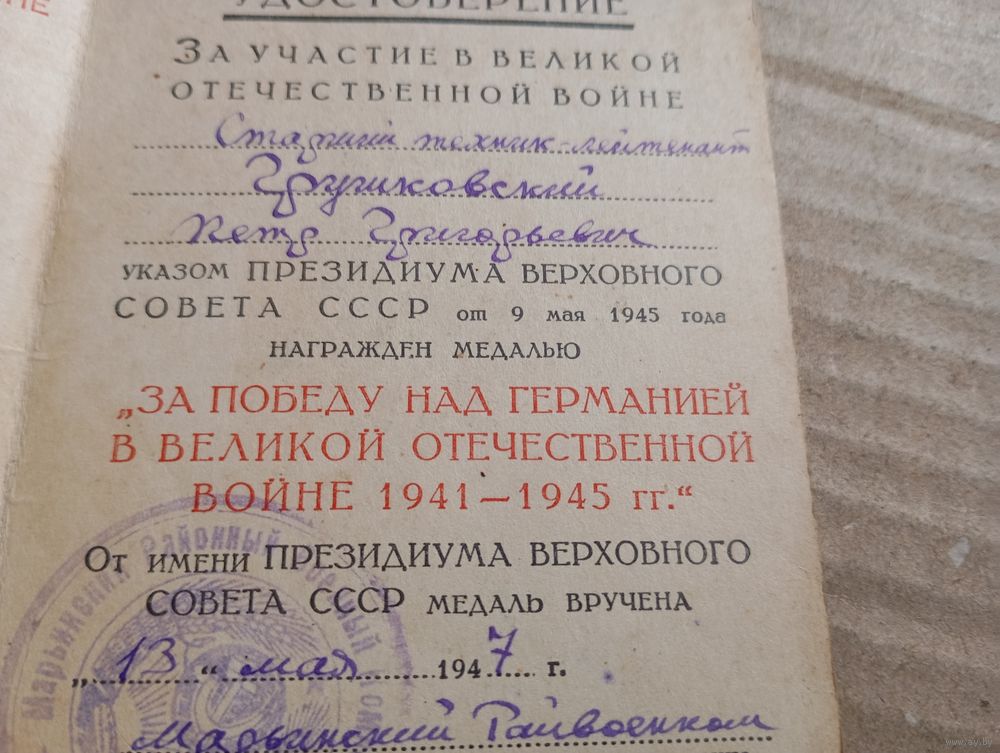 НЕ
УДОСТОВЕРЕНИЕ
ЗА УЧАСТИЕ В ВЕЛИКОЙ
ОТЕЧЕСТВЕННОЙ ВОЙНЕ
Старший техник-лейтенант
Петр Григорьевич
УКАЗОМ ПРЕЗИДИУМА ВЕРХОВНОГО
СОВЕТА СССР от 9 мая 1945 года
НАГРАЖДЕН МЕДАЛЬЮ
„ЗА ПОБЕДУ НАД ГЕРМАНИЕЙ
В ВЕЛИКОЙ ОТЕЧЕСТВЕННОЙ
ВОЙНЕ 1941—1945 гг.“
ОТ ИМЕНИ ПРЕЗИДИУМА ВЕРХОВНОГО
СОВЕТА СССР МЕДАЛЬ ВРУЧЕНА
„13“ мая 1947 г.
Марьинский Райвоенком
Марьинский Районный Военный Ком
www.ay.by